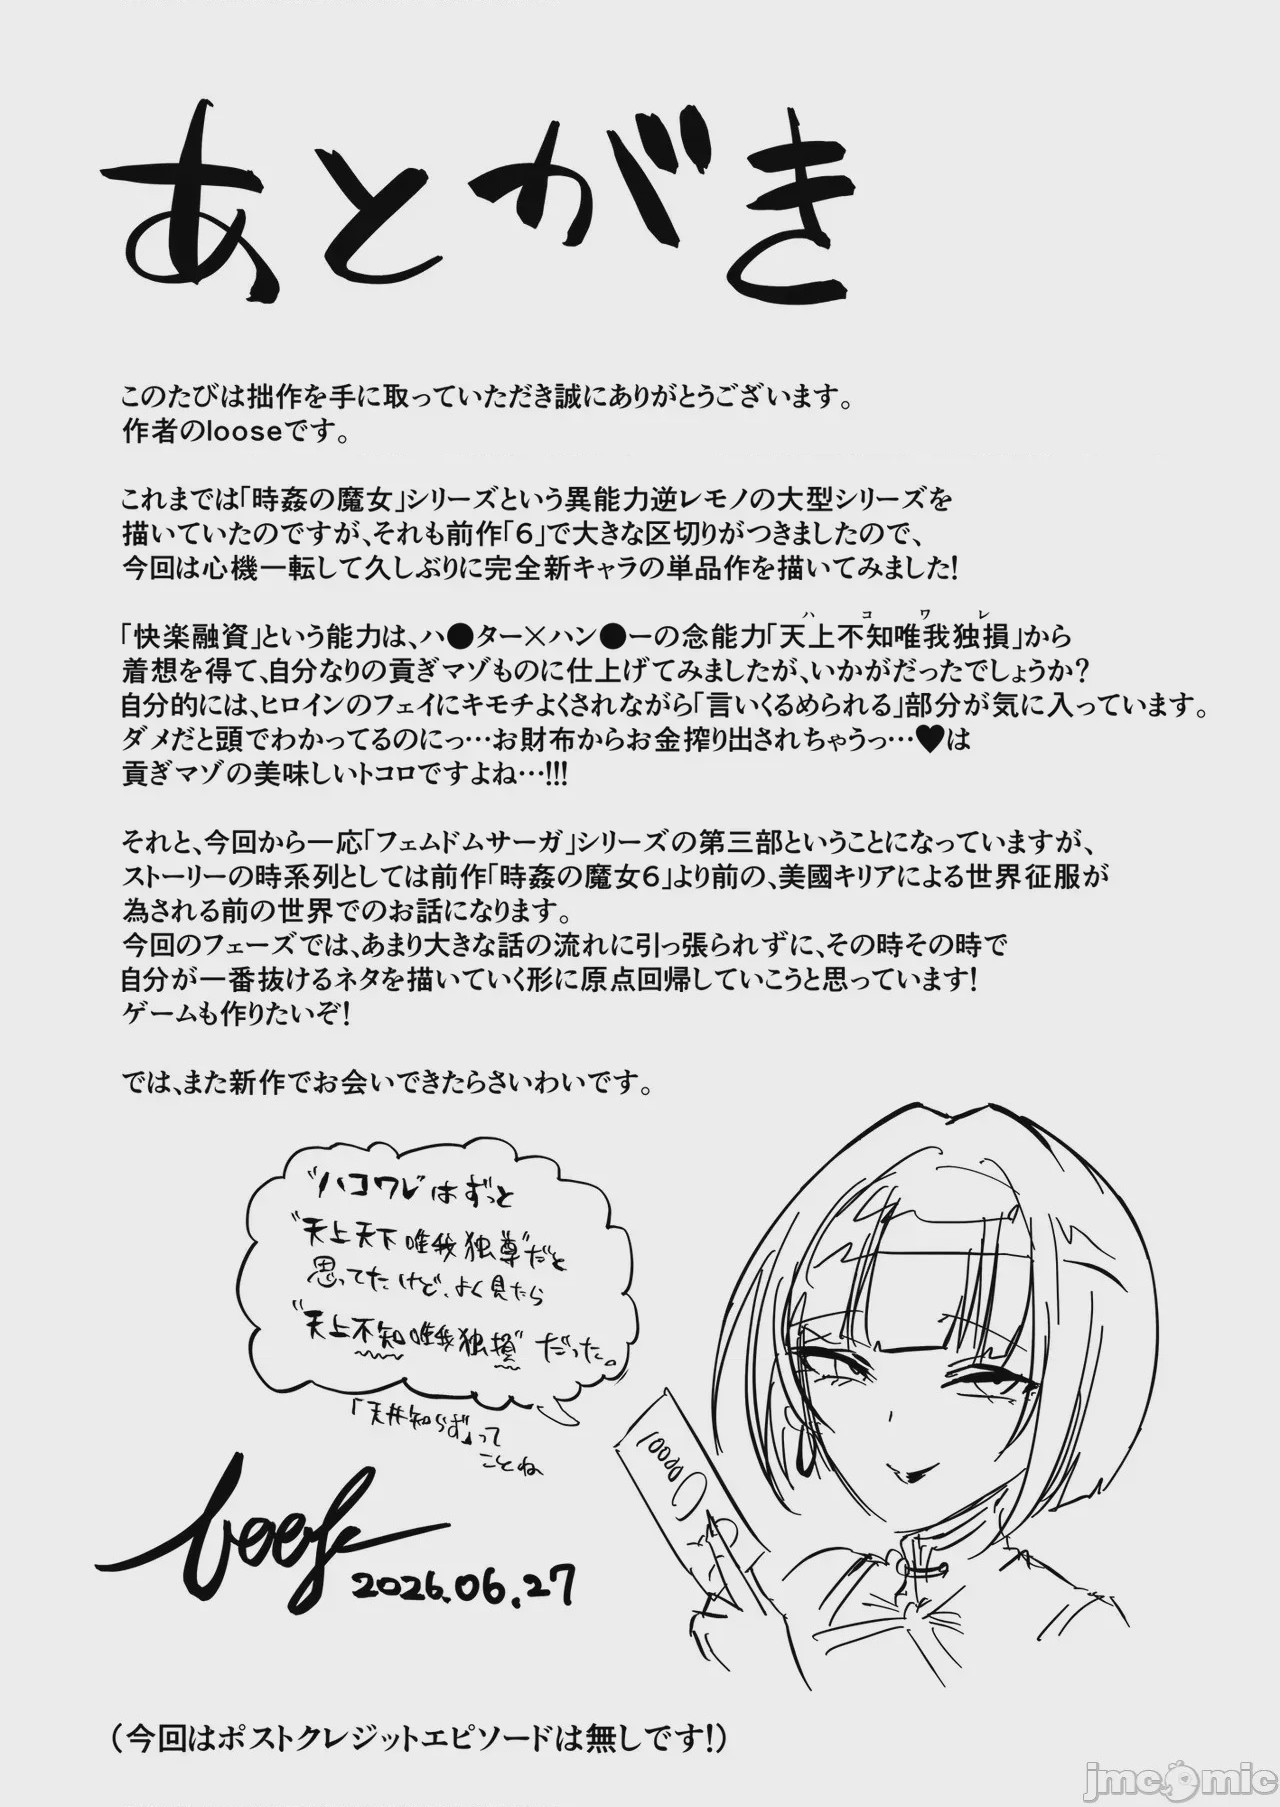 あとがき
このたびは拙作を手に取っていただき誠にありがとうございます。
作者のlooseです。
これまでは「時姦の魔女」シリーズという異能力逆レモノの大型シリーズを
描いていたのですが、それも前作「6」で大きな区切りがつきましたので、
今回は心機一転して久しぶりに完全新キャラの単品作を描いてみました!
ハコワレ
「快楽融資」という能力は、ハ●ター×ハン●ーの念能力「天上不知唯我独損」から
着想を得て、自分なりの貢ぎマゾものに仕上げてみましたが、いかがだったでしょうか?
自分的には、ヒロインのフェイにキモチよくされながら「言いくるめられる」部分が気に入っています。
ダメだと頭でわかってるのにっ…お財布からお金搾り出されちゃうっ…♥は
貢ぎマゾの美味しいトコロですよね…!!!
それと、今回から一応「フェムドムサーガ」シリーズの第三部ということになっていますが、
ストーリーの時系列としては前作「時姦の魔女6」より前の、美國キリアによる世界征服が
為される前の世界でのお話になります。
今回のフェーズでは、あまり大きな話の流れに引っ張られずに、その時その時で
自分が一番抜けるネタを描いていく形に原点回帰していこうと思っています!
ゲームも作りたいぞ!
では、また新作でお会いできたらさいわいです。
"ハコワレ"はずっと
"天上天下唯我独尊"だと
思ってたけど、よく見たら
"天上不知唯我独損"だった。
「天井知らず」って
ことね
loose
2026.06.27
10000
(今回はポストクレジットエピソードは無しです!)
jmcomic